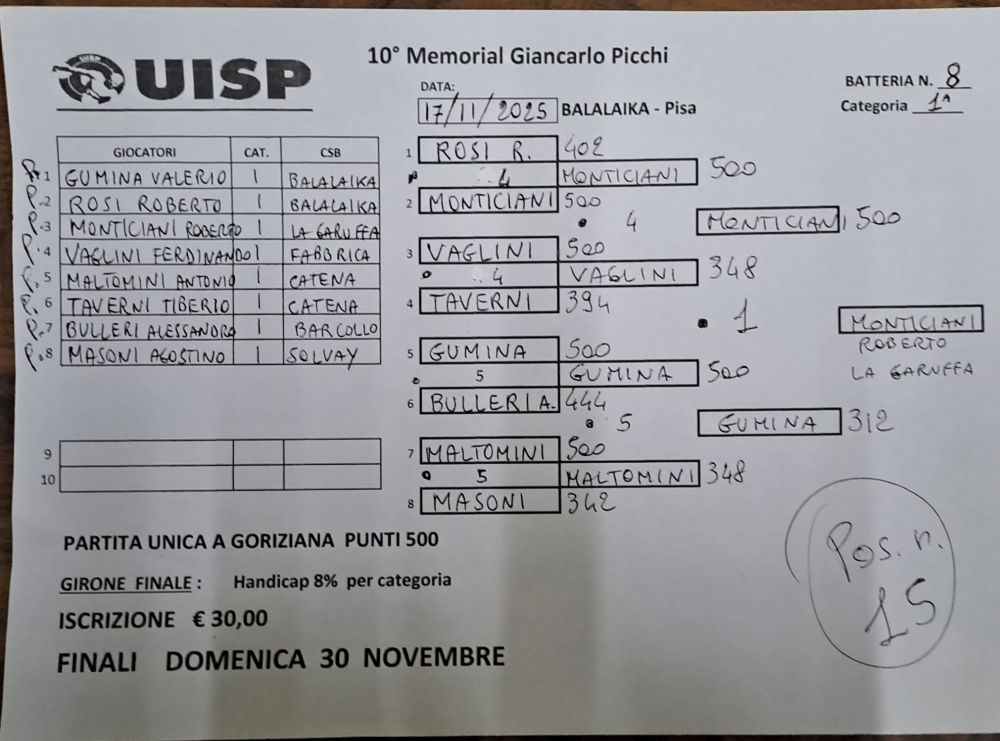 UISP
10° Memorial Giancarlo Picchi
DATA:
17/11/2025 BALALAIKA - Pisa
BATTERIA N. 8
Categoria 1ᴬ
GIOCATORI CAT. CSB
P.1 GUMINA VALERIO 1 BALALAIKA
P.2 ROSI ROBERTO 1 BALALAIKA
P.3 MONTICIANI ROBERTO 1 LA GARUFFA
P.4 VAGLINI FERDINANDO 1 FABBRICA
P.5 MALTOMINI ANTONIO 1 CATENA
P.6 TAVERNI TIBERIO 1 CATENA
P.7 BULLERI ALESSANDRO 1 BARCOLLO
P.8 MASONI AGOSTINO 1 SOLVAY
9
10
1 ROSI R. 402
4 MONTICIANI 500
2 MONTICIANI 500
4 MONTICIANI 500
3 VAGLINI 500
4 VAGLINI 348
4 TAVERNI 394
1 MONTICIANI
ROBERTO
LA GARUFFA
5 GUMINA 500
5 GUMINA 500
6 BULLERI A. 444
5 GUMINA 312
7 MALTOMINI 500
5 MALTOMINI 348
8 MASONI 342
PARTITA UNICA A GORIZIANA PUNTI 500
GIRONE FINALE : Handicap 8% per categoria
ISCRIZIONE € 30,00
FINALI DOMENICA 30 NOVEMBRE
Pos. n.
15